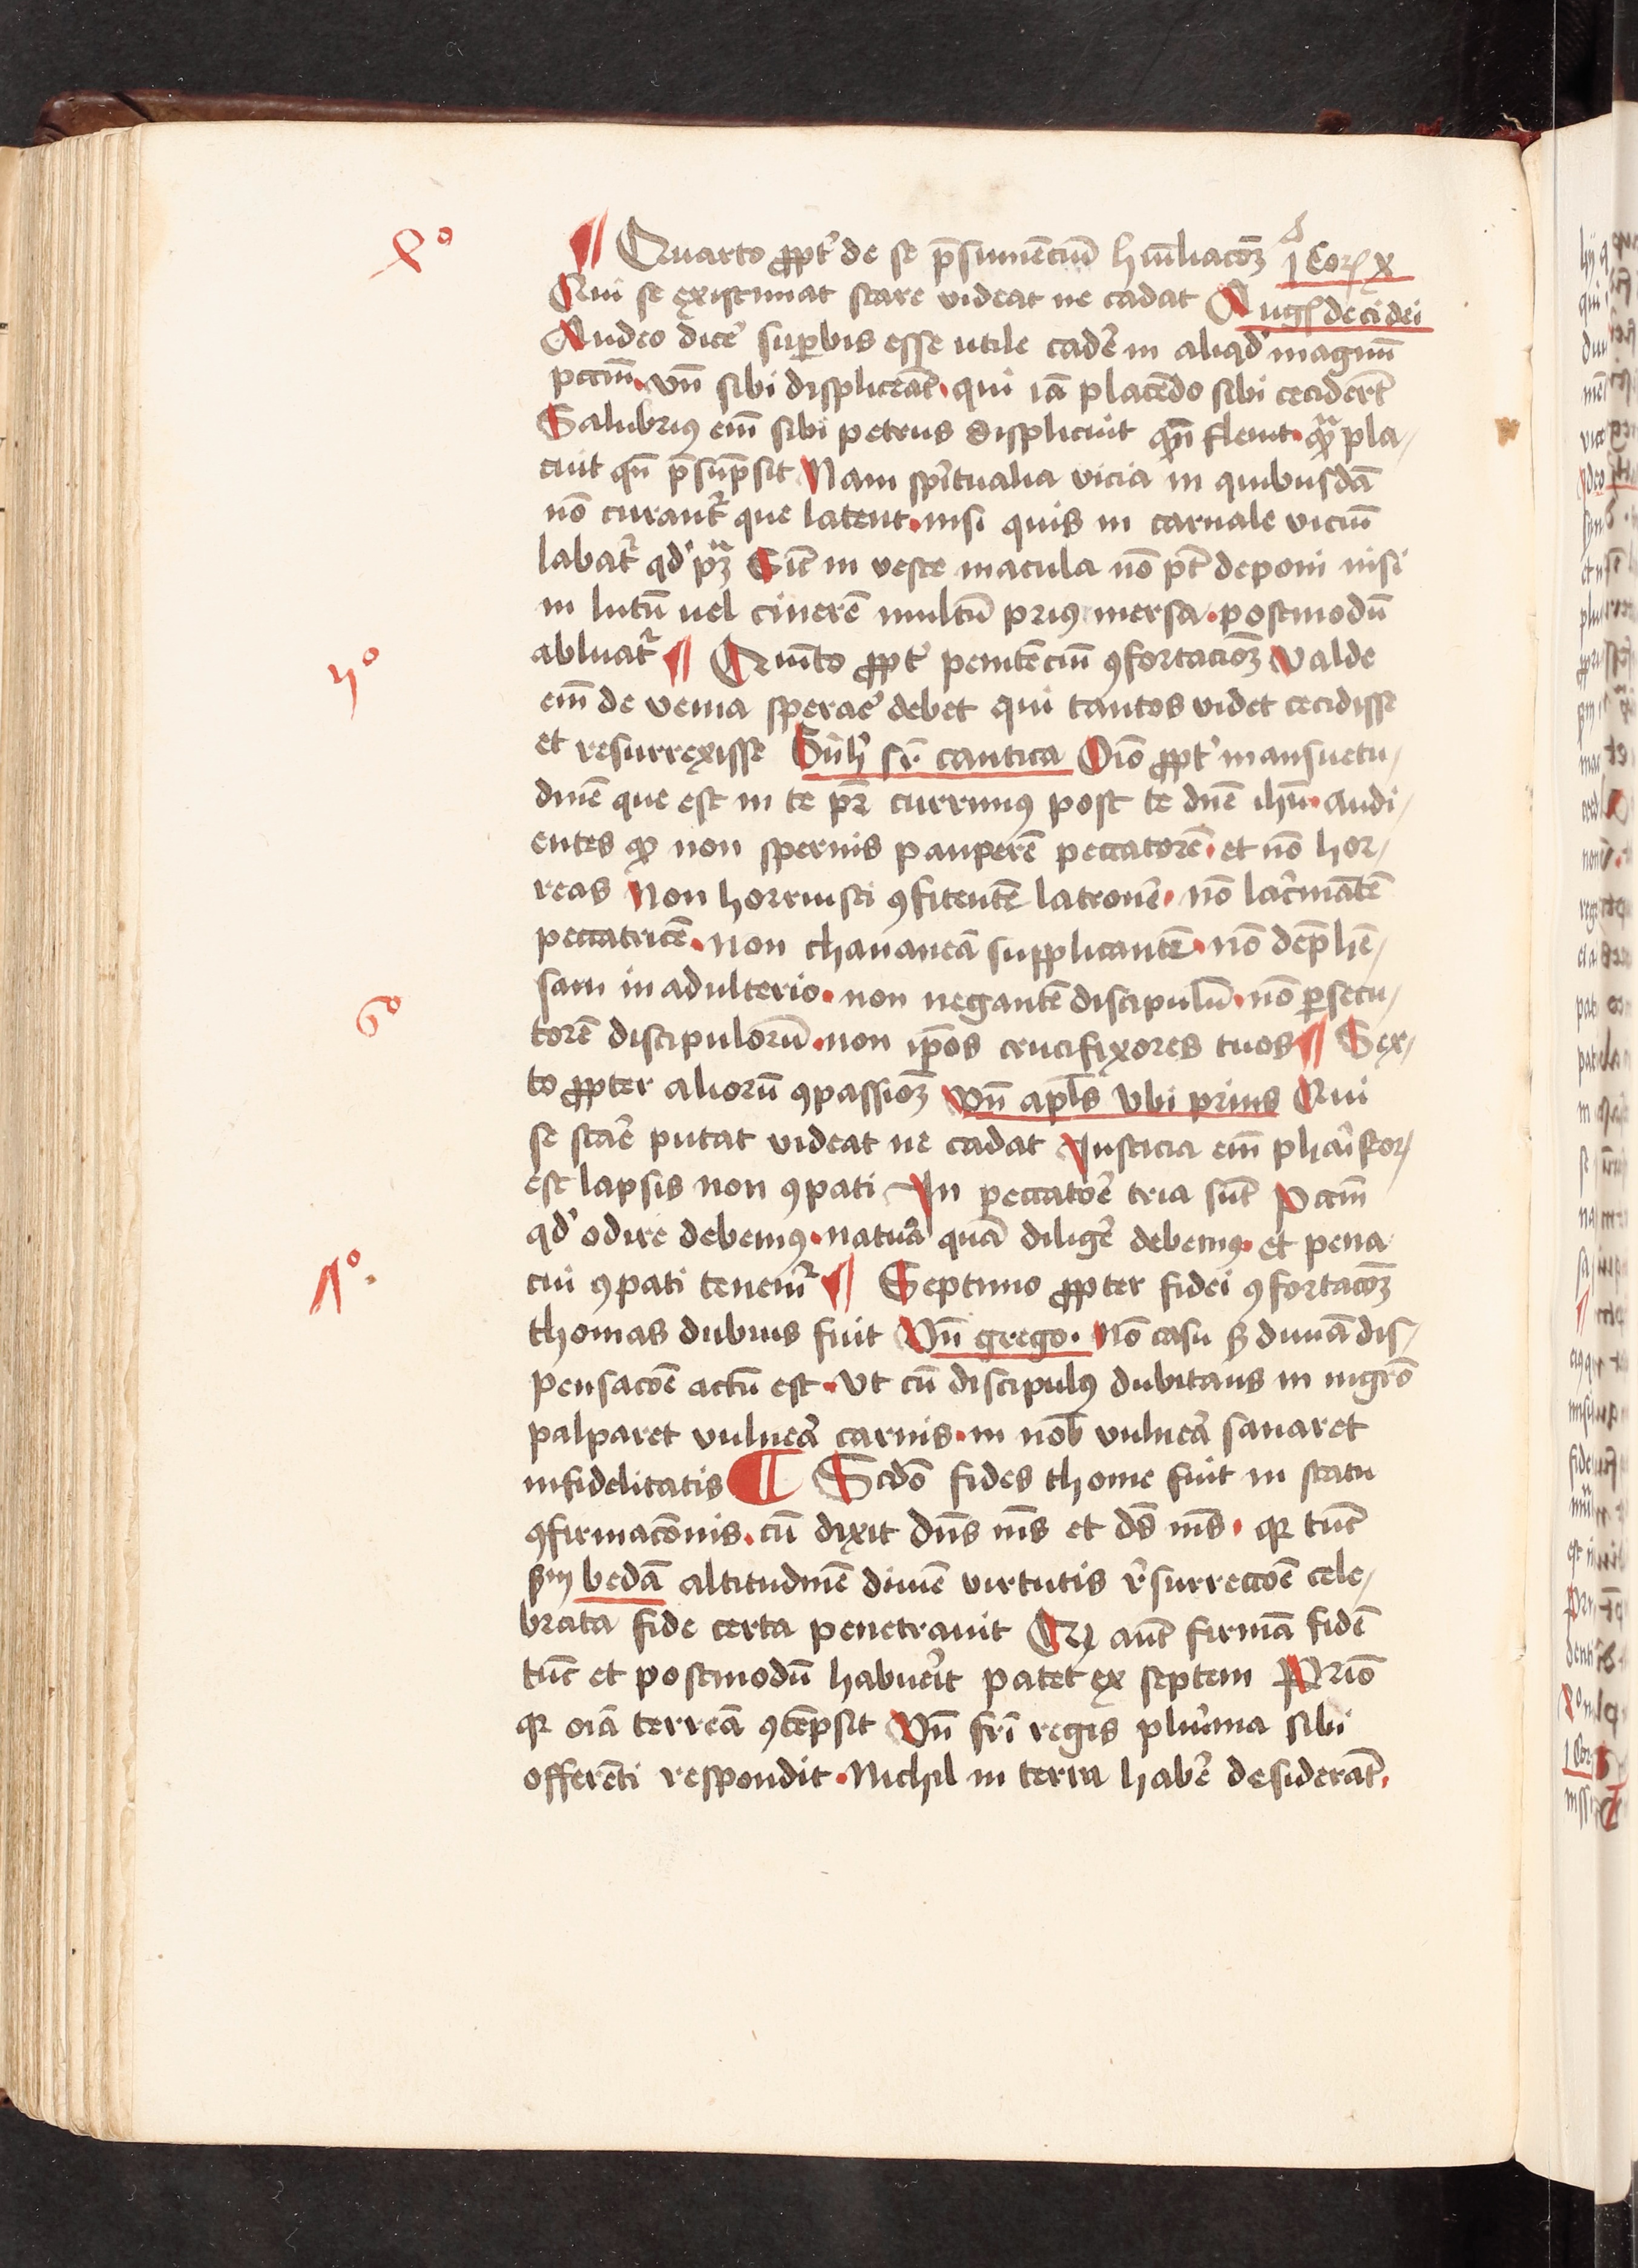 4º
¶ Quarto ꝓpt̾ de se p̄sumēciū hūiliacōꝫ jª Corꝭ x
Qui se existimat stare videat ne cadat Augꝭ de ci dei
Audeo dice᷒ suꝑbis esse utile cade᷒ in aliqd̾ magnū
pctm̄. vn̄ sibi displiceāt. qui iā placēdo sibi ceciderūt
Salubriꝰ em̄ sibi petrus displicuit qn̄ fleuit. qᷓ pla/
cuit qn̄ p̄sūpsit Nam spi᷒tualia vicia in quibusdā
nō curant᷒ que latent. nisi quis in carnale viciū
labat᷒ qd̾ pꝫ Sic̄ in veste macula nō pt̄ deponi nisi
in lutū uel cinerē multū priꝰ mersa. postmodū
abluat᷒ ¶ Quīto ꝓpt̾ penitēciū ꝯfortacioꝫ Valde
5º
em̄ de venia spera᷒e debet qui tantos videt cecidisse
et resurrexisse Bn̄h᷒ sr̄ cantica Dīo ꝓpt̾ mansuetu/
dinē que est in te pꝫ currimꝰ post te dn̄e ih̄u. audi/
entes ꝙ non spernis pauperē peccatorē. et nō hor/
reas Non horruisti ꝯfitentē latronē. nō lac᷒mātē
peccatricē. non chananeā supplicantē. nō dep̄hē/
sam in adulterio. non negantē discipulū. nō ꝑsecu/
6º
torē discipulorū. non ip̄os crucifixores tuos ¶ Sex/
to ꝓpter aliorū ꝯpassioꝫ Vn̄ apl̄s Vbi prius Qui
se sta᷒e putat videat ne cadat Iusticia em̄ pha᷒iseorꝭ
est lapsis non ꝯpati In peccato᷒e tria sūt Pctm̄
qd̾ odire debemꝰ. natu᷒ā quā dilige᷒ debemꝰ. et pena
7º.
cui ꝯpati tenem᷒ ¶ Septimo ꝓpter fidei ꝯfortacōꝫ
thomas dubius fuit Vn̄ grego. Nō casu sꝫ diuīa dis/
pensacōe actū est. Vt cū discipulꝰ dubitans in mgr̄o
palparet vulne᷒a carnis. in nob̄ vulne᷒a sanaret
infidelitatis ¶ Scdō fides thome fuit in statu
ꝯfirmacōnis. cū dixit dn̄s m̄s et ds̄ m̄s. qꝛ tūc
scd̄m bedā altitudinē diuīe virtutis r᷒surreccōe cele/
brata fide certa penetrauit Qꝫ aut̄ firmā fidē
tūc et postmodū habue᷒it patet ex septem Primō
qꝛ oīa terrēa ꝯtēpsit Vn̄ fri᷒ regis plu᷒ima sibi
offerēti respondit. Nichil in terra habe᷒ desiderāt.